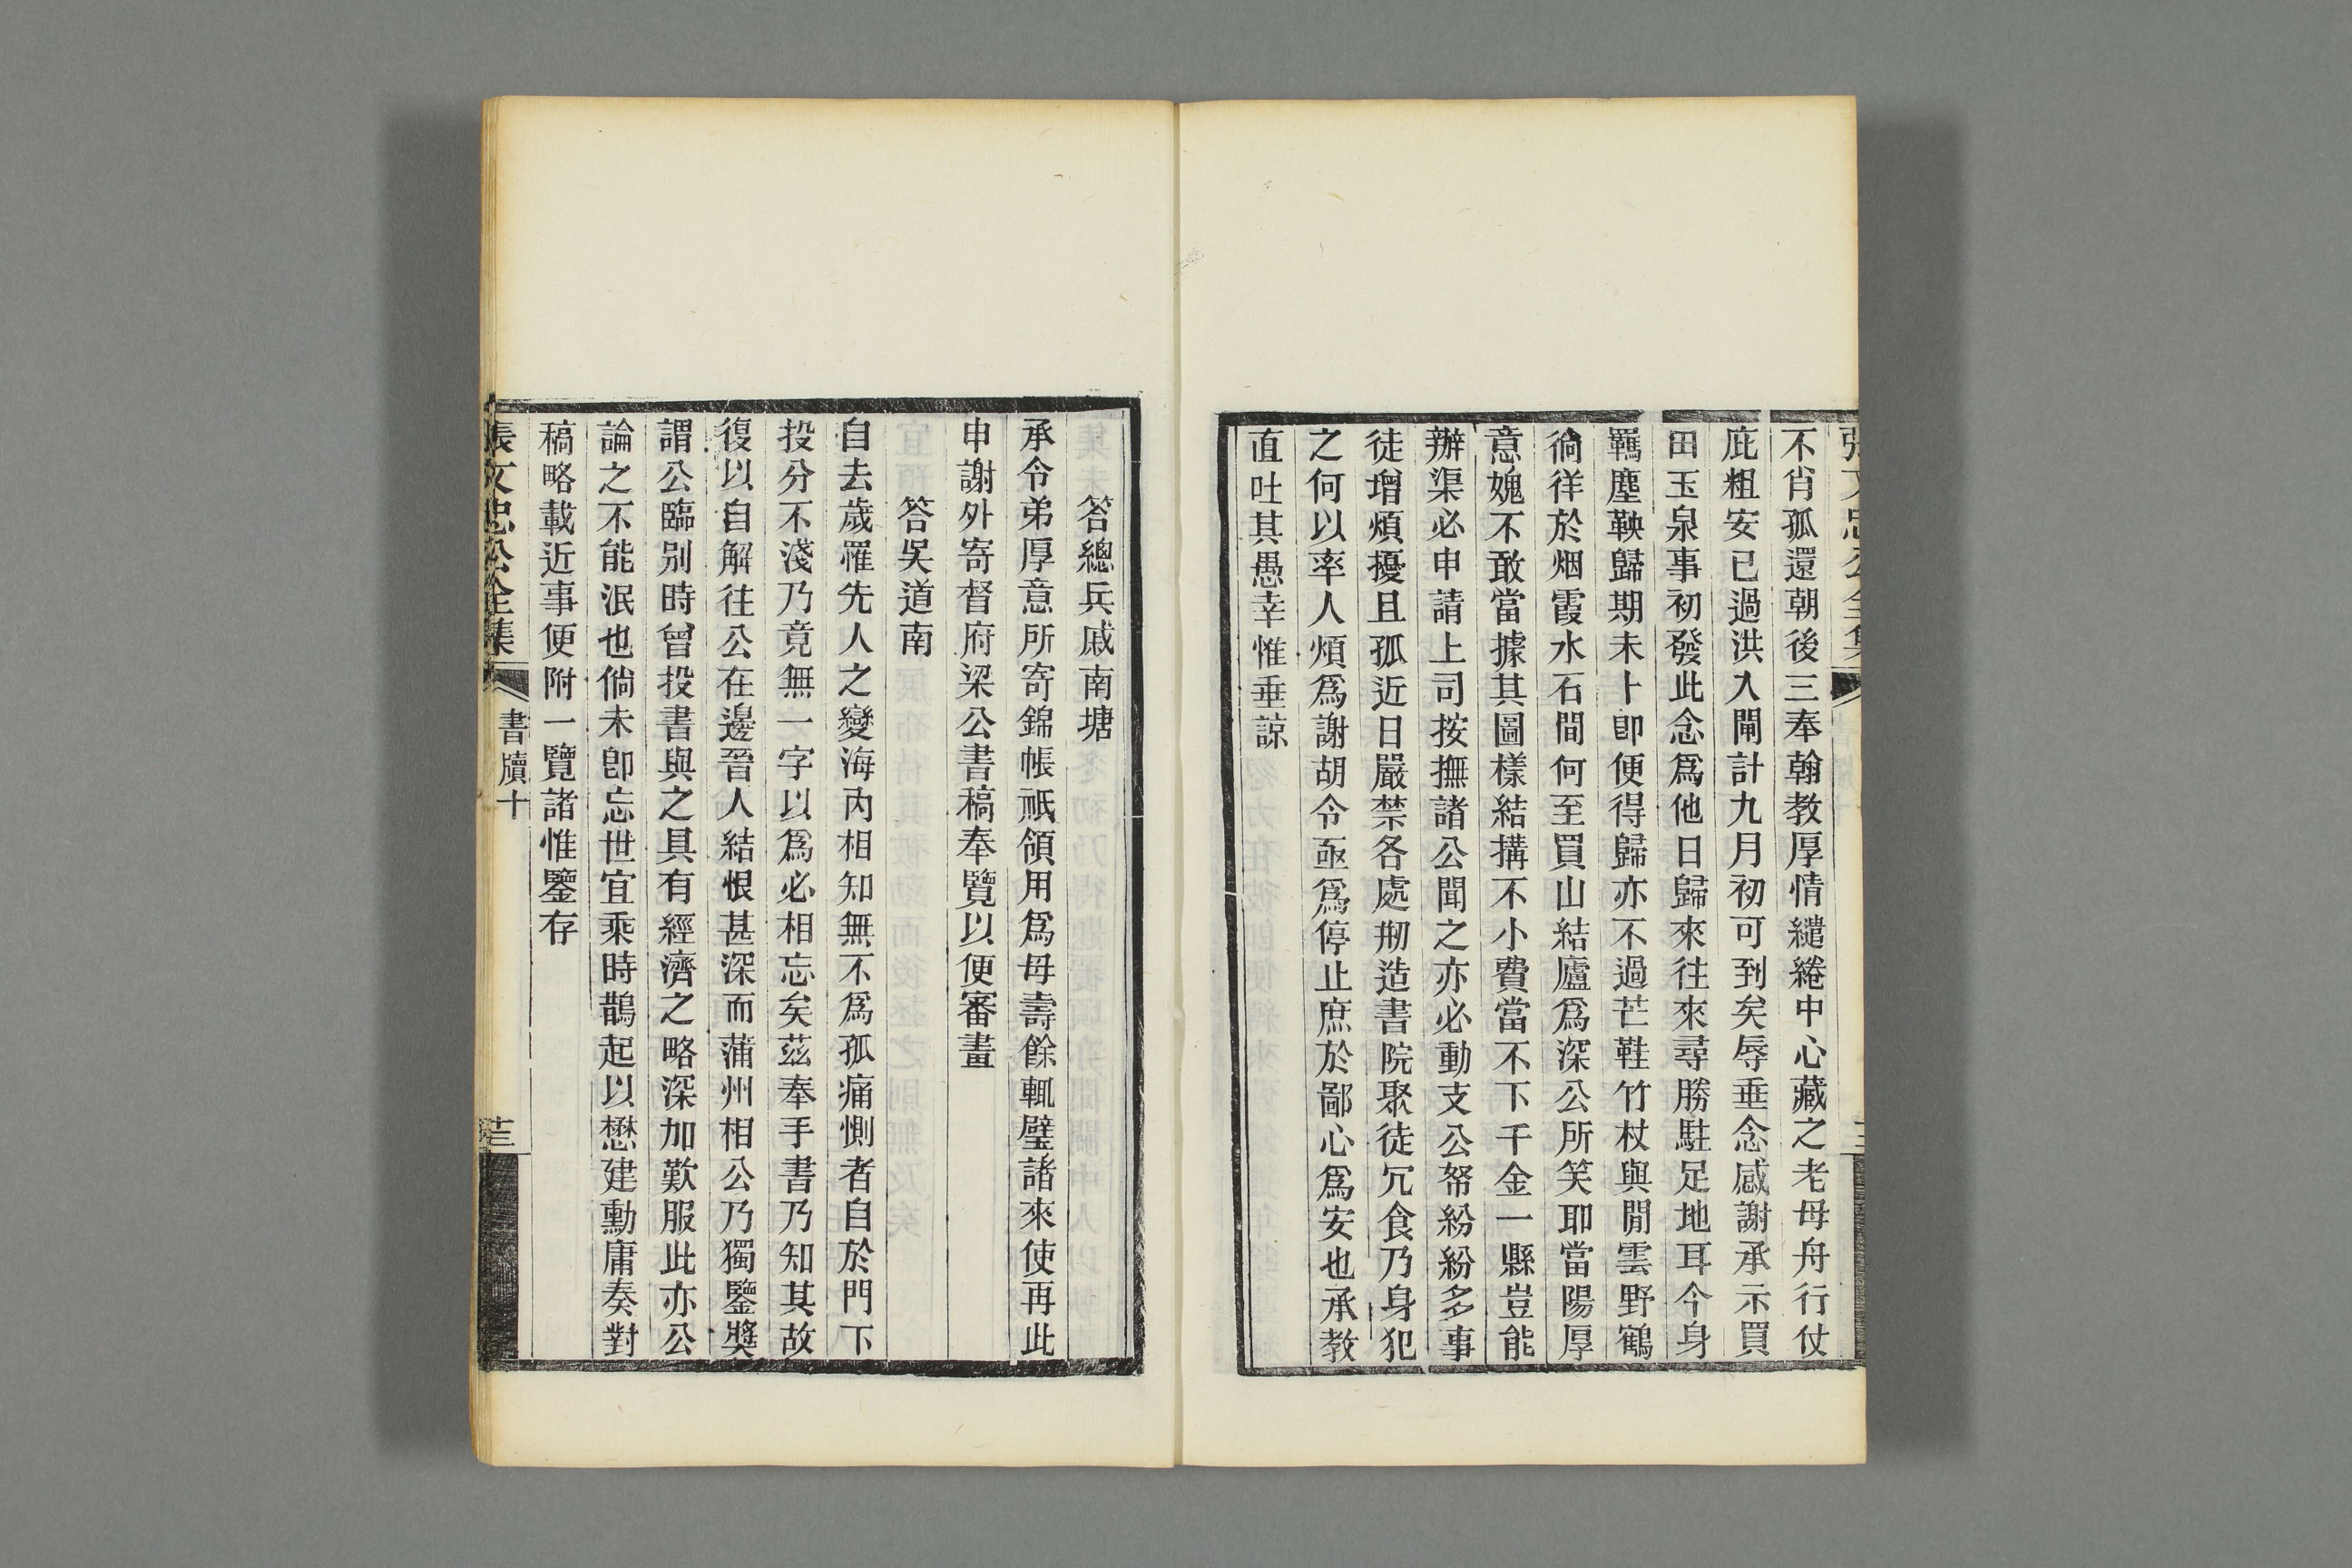 不肖孤還朝後三奉翰教厚情繾綣中心藏之老母舟行仗
庇粗安已過洪入閘計九月初可到矣辱垂念感謝承示買
田玉泉事初發此念爲他日歸來往來尋勝駐足地耳今身
羈塵鞅歸期未卜卽便得歸亦不過芒鞋竹杖與閒雲野鶴
徜徉於烟霞水石間何至買山結廬爲深公所笑耶當陽厚
意媿不敢當據其圖樣結搆不小費當不下千金一縣豈能
辦渠必申請上司按撫諸公聞之亦必動支公帑紛紛多事
徒增煩擾且孤近日嚴禁各處刱造書院聚徒冗食乃身犯
之何以率人煩爲謝胡令亟爲停止庶於鄙心爲安也承教
直吐其愚幸惟垂諒
答總兵戚南塘
承令弟厚意所寄錦帳祗領用爲母壽餘輒璧諸來使再此
申謝外寄督府梁公書稿奉覽以便審畫
答吳道南
自去歲罹先人之變海內相知無不爲孤痛惻者自於門下
投分不淺乃竟無一字以爲必相忘矣茲奉手書乃知其故
復以自解往公在邊晉人結恨甚深而蒲州相公乃獨鑒獎
謂公臨別時曾投書與之具有經濟之略深加歎服此亦公
論之不能泯也倘未卽忘世宜乘時鵲起以懋建勳庸奏對
稿略載近事便附一覽諸惟鑒存
張文忠公全集
書牘十